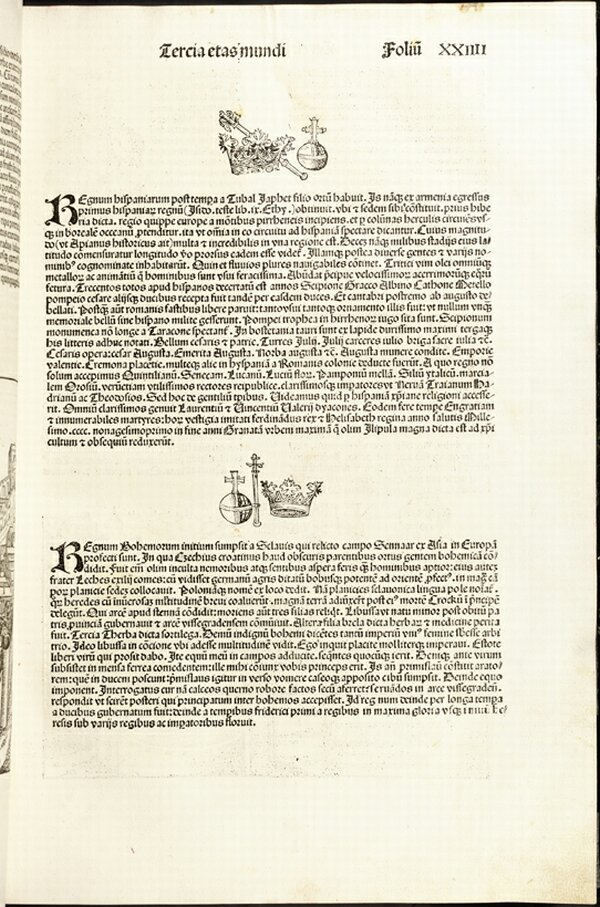 Tercia etas mundi Foliũ XXIIII
REgnum hispaniarum post tempa a Tubal Japhet filio ortũ habuit. Is nãqꝫ ex armenia egressus
primus hispaniaꝝ regnũ (Isido. teste lib. ix. Ethy.) obtinuit. vbi et sedem sibi cõstituit. prius hibe
ria dicta. regio quippe europe a mõtibus pirrheneis incipiens. et ꝑ colũnas herculis circuiẽs vsqꝫ
in boreale occeanũ ptenditur. ita vt oĩa in eo circuitu ad hispaniã spectare dicantur. Cuius magnitu
do (vt Apianus historicus ait) multa et incredibilis in vna regione est. Deces nãqꝫ milibus stadijs eius la
titudo cõmensuratur longitudo vo prorsus eadem esse videt. Illamqꝫ postea diuerse gentes et varijs no
minibꝰ cognominate inhabitarũt. Quin et fluuios plures nauigabiles cõtinet. Tritici vini olei omniũqꝫ
metalloꝝ ac animantiũ hominibus vsui feracissima. Abũdat pcipue velocissimoꝝ acerrimorũqꝫ equoꝝ
fetura. Trecentos totos apud hispanos decertatũ est annos Scipione Gracco Albino Cathone Metello
pompeio cesare alijsqꝫ ducibus recepta fuit tandẽ per easdem duces. Et cantabri postremo ab augusto de
bellati. Postqꝫ aũt romanis fastibus libere paruit: tanto vsui tantoqꝫ ornamento illis fuit: vt nullum vnqꝫ
memoriale bellũ sine hispano milite gesserunt. Pompei trophea in pirrheneo iugo sita sunt. Scipionum
monumenta nõ longe a Taracone spectant. In bostetania tauri sunt ex lapide durissimo maximi tergaqꝫ
his litteris adhuc notati. Bellum cesaris et patrie. Turres Julij. Julij carceres iulio briga sacre iulia ꝛc.
Cesaris opera: cesar Augusta. Emerita Augusta. Norba augusta ꝛc. Augusta munere condite. Emporie
valentie. Cremona placetie. multeqꝫ alie in hyspania a Romanis colonie deducte fuerũt. A quo regno nõ
solum accepimus Quintilianũ. Senecam. Lucanũ. Luciũ flor. Pamponiũ mellã. Siliũ ytalicũ. marcia
lem Orosiũ. verũetiam vtilissimos rectores reipublice. clarissimosqꝫ impatores vt Neruã Traianum Ha
drianũ ac Theodosios. Sed hoc de gentiliũ tpibus. Uideamus quid ꝑ hispaniã xpiane religioni accesse
rit. Omniũ clarissimos genuit Laurentiũ et Uincentiũ Ualerij dyacones. Eodem fere tempe Engratiam
et innumerabiles martyres: hoꝝ vestigia imitati ferdinãdus rex et Helisabeth regina anno salutis Mille
simo. cccc. nonagesimoprimo in fine anni Granatã vrbem maximã qꝫ olim Ilipula magna dicta est ad xpi
cultum et obsequiũ reduxerũt.
REgnum Bohemorum initium sumpsit a Sclauis qui relicto campo Sennaar ex Asia in Europã
profecti sunt. In qua Czechius croatinus haud obscuris parentibus ortus gentem bohemicã cõ
didit. Fuit eni olim inculta nemoribus atqꝫ sentibus aspera feris qꝫ hominibus aptior: eius autẽ
frater Leches exilij comes: cũ vidisset germanũ agris ditatũ bobusqꝫ potentẽ ad orientẽ pfectꝰ. in magꝫ cã
poꝝ planicie sedes collocauit. Poloniãqꝫ nomẽ ex loco dedit. Nã planicies sclauonica lingua pole notat.
qꝝ heredes cũ inuẽrosaꝫ multitudinẽ breui coaluerũt. magnã terrã adiũxerẽt post eiꝰ mortẽ Crockũ i pncipẽ
delegũt. Qui arcẽ apud stennã cõdidit: moriens aũt tres filias reliqt. Libussa vt natu minor post obitũ pa
tris, puinciã gubernauit et arcẽ vissegradensem cõmuniit. Altera filia brela dicta herbaꝝ et medicine perita
fuit. Tercia Therba dicta sortilega. Demũ indignũ bohemi dicẽtes tantũ imperiũ vniꝰ femine subesse arbi
trio. Ideo libussa in cõcione vbi adesse multitudinẽ vidit. Ego inquit placide molliterqꝫ imperaui. Estote
liberi virũ qui prosit dabo. Ite equũ meũ in campos adducite. seqntes quocũqꝫ ierit. Deniqꝫ ante virum
subsistet in mensa ferrea comedentem: ille mihi cõiunx vobis princeps erit. Is añ primislaũ cõstitit arato
rem: quẽ in ducem poscunt: pmislaus igitur in verso vomere caseoqꝫ apposito cibũ sumpsit. Deinde equo
imponent. Interrogatus cur nã calceos querno robore factos secũ afferret: seruãdos in arce vissegradeñ.
respondit vt sciret posteri qui principatum inter bohemos accepisset. Id regnum deinde per longa tempa
a ducibus gubernatum fuit: deinde a tempibus friderici primi a regibus in maxima gloria vsqꝫ i
resis sub varijs regibus ac impatoribus floruit.